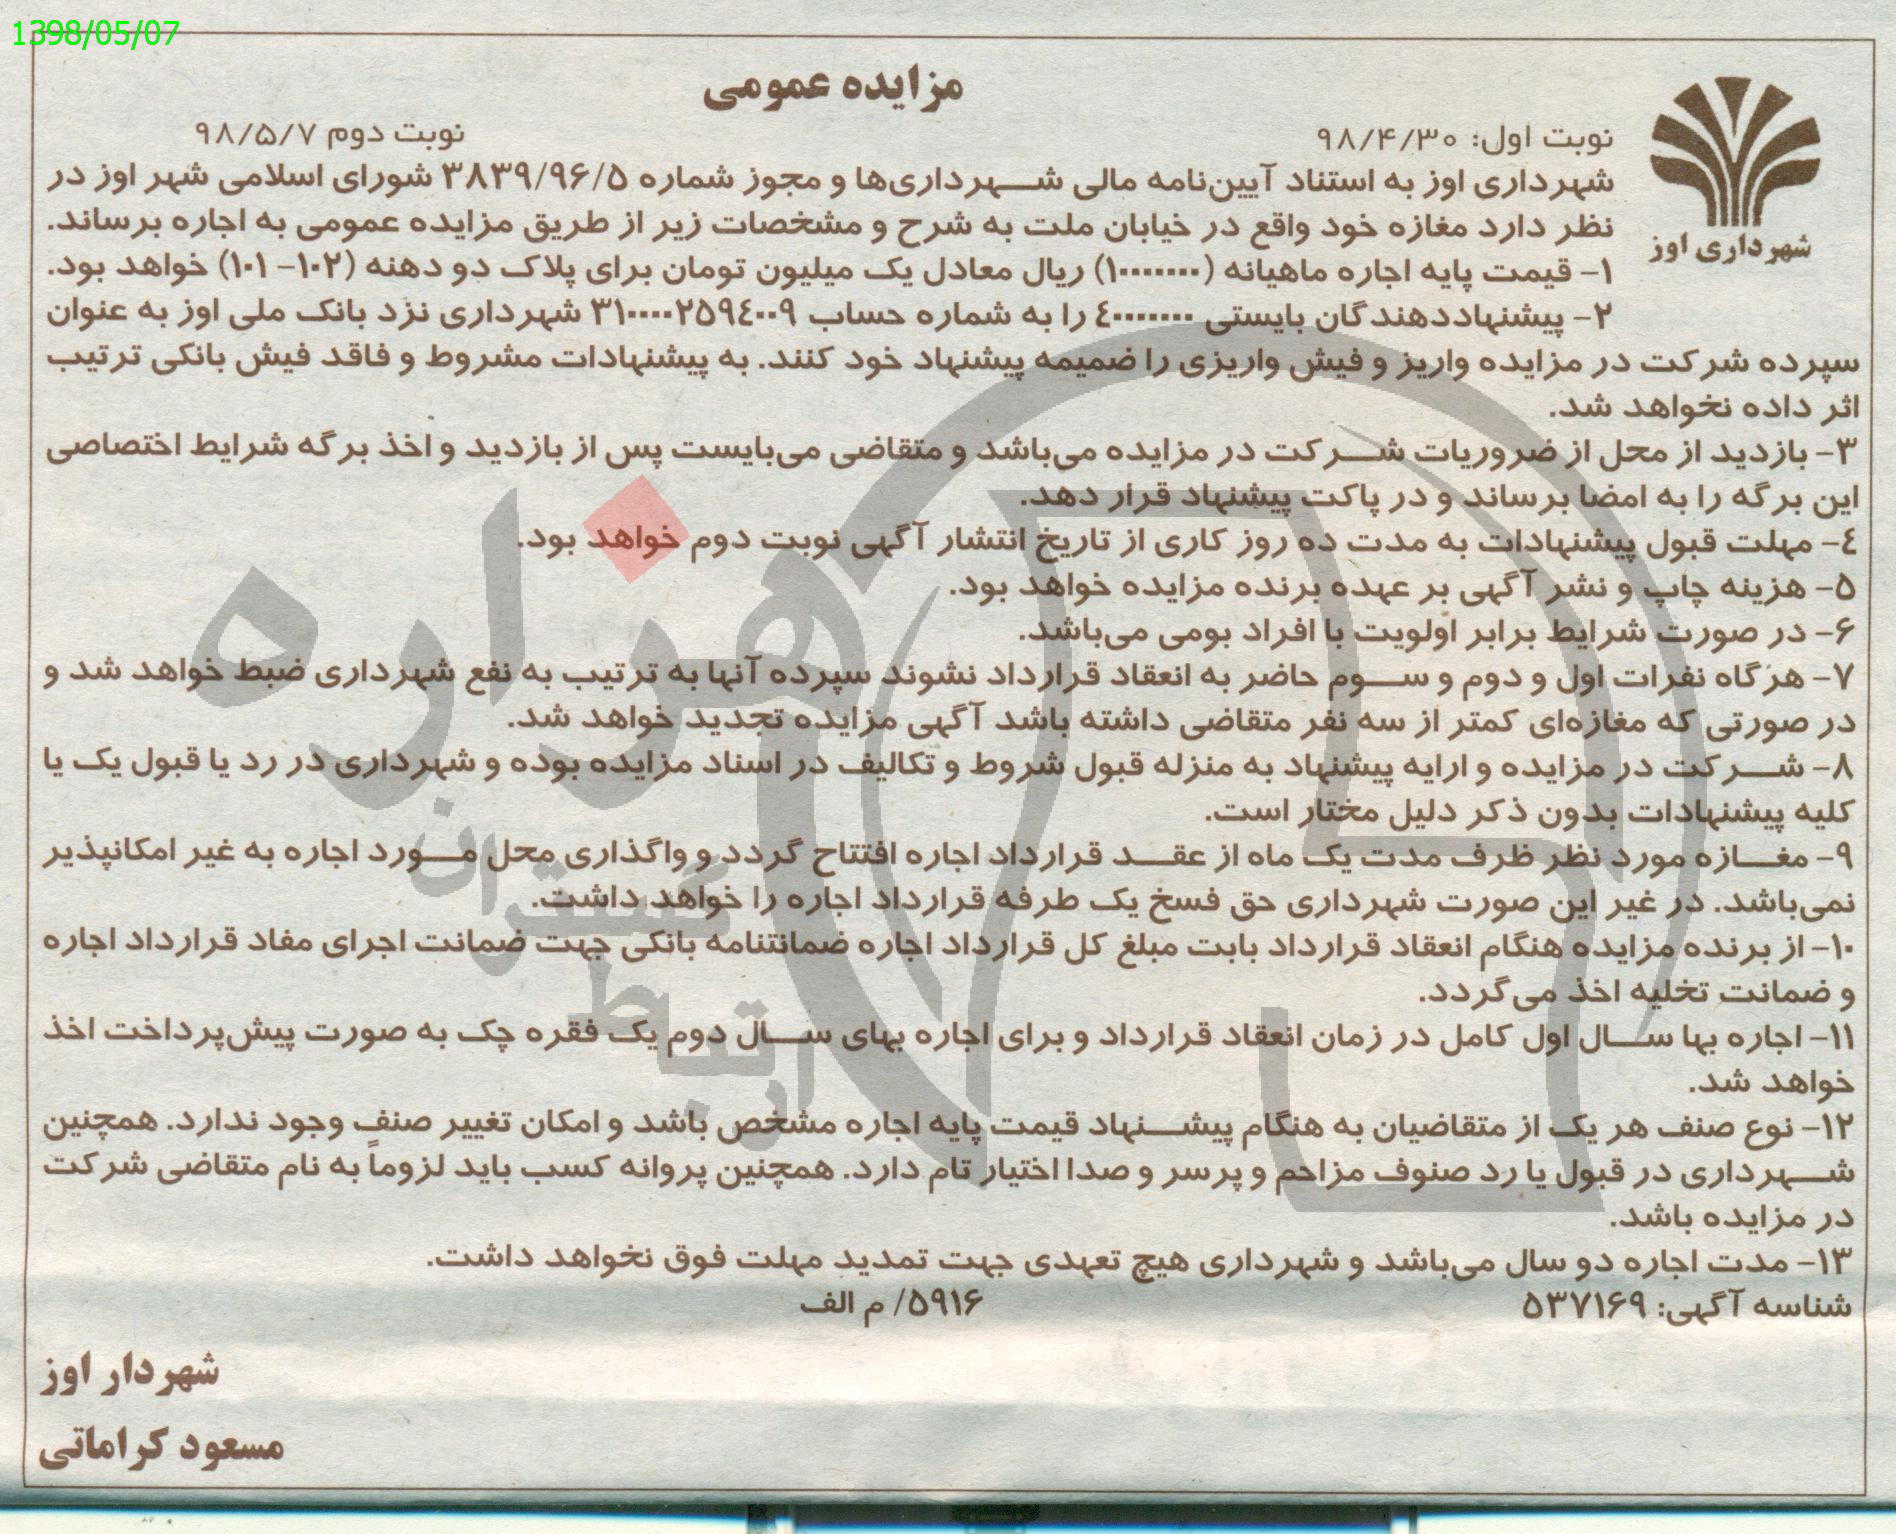 1398/05/07
مزایده عمومی
نوبت اول: ۹۸/۴/۳۰
نوبت دوم ۹۸/۵/۷
شهرداری اوز
شهرداری اوز به استناد آیین‌نامه مالی شهرداری‌ها و مجوز شماره ۳۸۳۹/۹۶/۵ شورای اسلامی شهر اوز در
نظر دارد مغازه خود واقع در خیابان ملت به شرح و مشخصات زیر از طریق مزایده عمومی به اجاره برساند.
۱- قیمت پایه اجاره ماهیانه (۱۰۰۰۰۰۰۰) ریال معادل یک میلیون تومان برای پلاک دو دهنه (۱۰۲- ۱۰۱) خواهد بود.
۲- پیشنهاددهندگان بایستی ۴۰۰۰۰۰۰۰ را به شماره حساب ۳۱۰۰۰۰۲۵۹۴۰۰۹ شهرداری نزد بانک ملی اوز به عنوان
سپرده شرکت در مزایده واریز و فیش واریزی را ضمیمه پیشنهاد خود کنند. به پیشنهادات مشروط و فاقد فیش بانکی ترتیب
اثر داده نخواهد شد.
۳- بازدید از محل از ضروریات شرکت در مزایده می‌باشد و متقاضی می‌بایست پس از بازدید و اخذ برگه شرایط اختصاصی
این برگه را به امضا برساند و در پاکت پیشنهاد قرار دهد.
۴- مهلت قبول پیشنهادات به مدت ده روز کاری از تاریخ انتشار آگهی نوبت دوم خواهد بود.
۵- هزینه چاپ و نشر آگهی بر عهده برنده مزایده خواهد بود.
۶- در صورت شرایط برابر اولویت با افراد بومی می‌باشد.
۷- هرگاه نفرات اول و دوم و سوم حاضر به انعقاد قرارداد نشوند سپرده آنها به ترتیب به نفع شهرداری ضبط خواهد شد و
در صورتی که مغازه‌ای کمتر از سه نفر متقاضی داشته باشد آگهی مزایده تجدید خواهد شد.
۸- شرکت در مزایده و ارایه پیشنهاد به منزله قبول شروط و تکالیف در اسناد مزایده بوده و شهرداری در رد یا قبول یک یا
کلیه پیشنهادات بدون ذکر دلیل مختار است.
۹- مغازه مورد نظر ظرف مدت یک ماه از عقد قرارداد اجاره افتتاح گردد و واگذاری محل مورد اجاره به غیر امکانپذیر
نمی‌باشد. در غیر این صورت شهرداری حق فسخ یک طرفه قرارداد اجاره را خواهد داشت.
۱۰- از برنده مزایده هنگام انعقاد قرارداد بابت مبلغ کل قرارداد اجاره ضمانتنامه بانکی جهت ضمانت اجرای مفاد قرارداد اجاره
و ضمانت تخلیه اخذ می‌گردد.
۱۱- اجاره بها سال اول کامل در زمان انعقاد قرارداد و برای اجاره بهای سال دوم یک فقره چک به صورت پیش‌پرداخت اخذ
خواهد شد.
۱۲- نوع صنف هر یک از متقاضیان به هنگام پیشنهاد قیمت پایه اجاره مشخص باشد و امکان تغییر صنف وجود ندارد. همچنین
شهرداری در قبول یا رد صنوف مزاحم و پرسر و صدا اختیار تام دارد. همچنین پروانه کسب باید لزوماً به نام متقاضی شرکت
در مزایده باشد.
۱۳- مدت اجاره دو سال می‌باشد و شهرداری هیچ تعهدی جهت تمدید مهلت فوق نخواهد داشت.
شناسه آگهی: ۵۳۷۱۶۹
۵۹۱۶/ م الف
شهردار اوز
مسعود کراماتی
هزاره
گستران
ارتباط